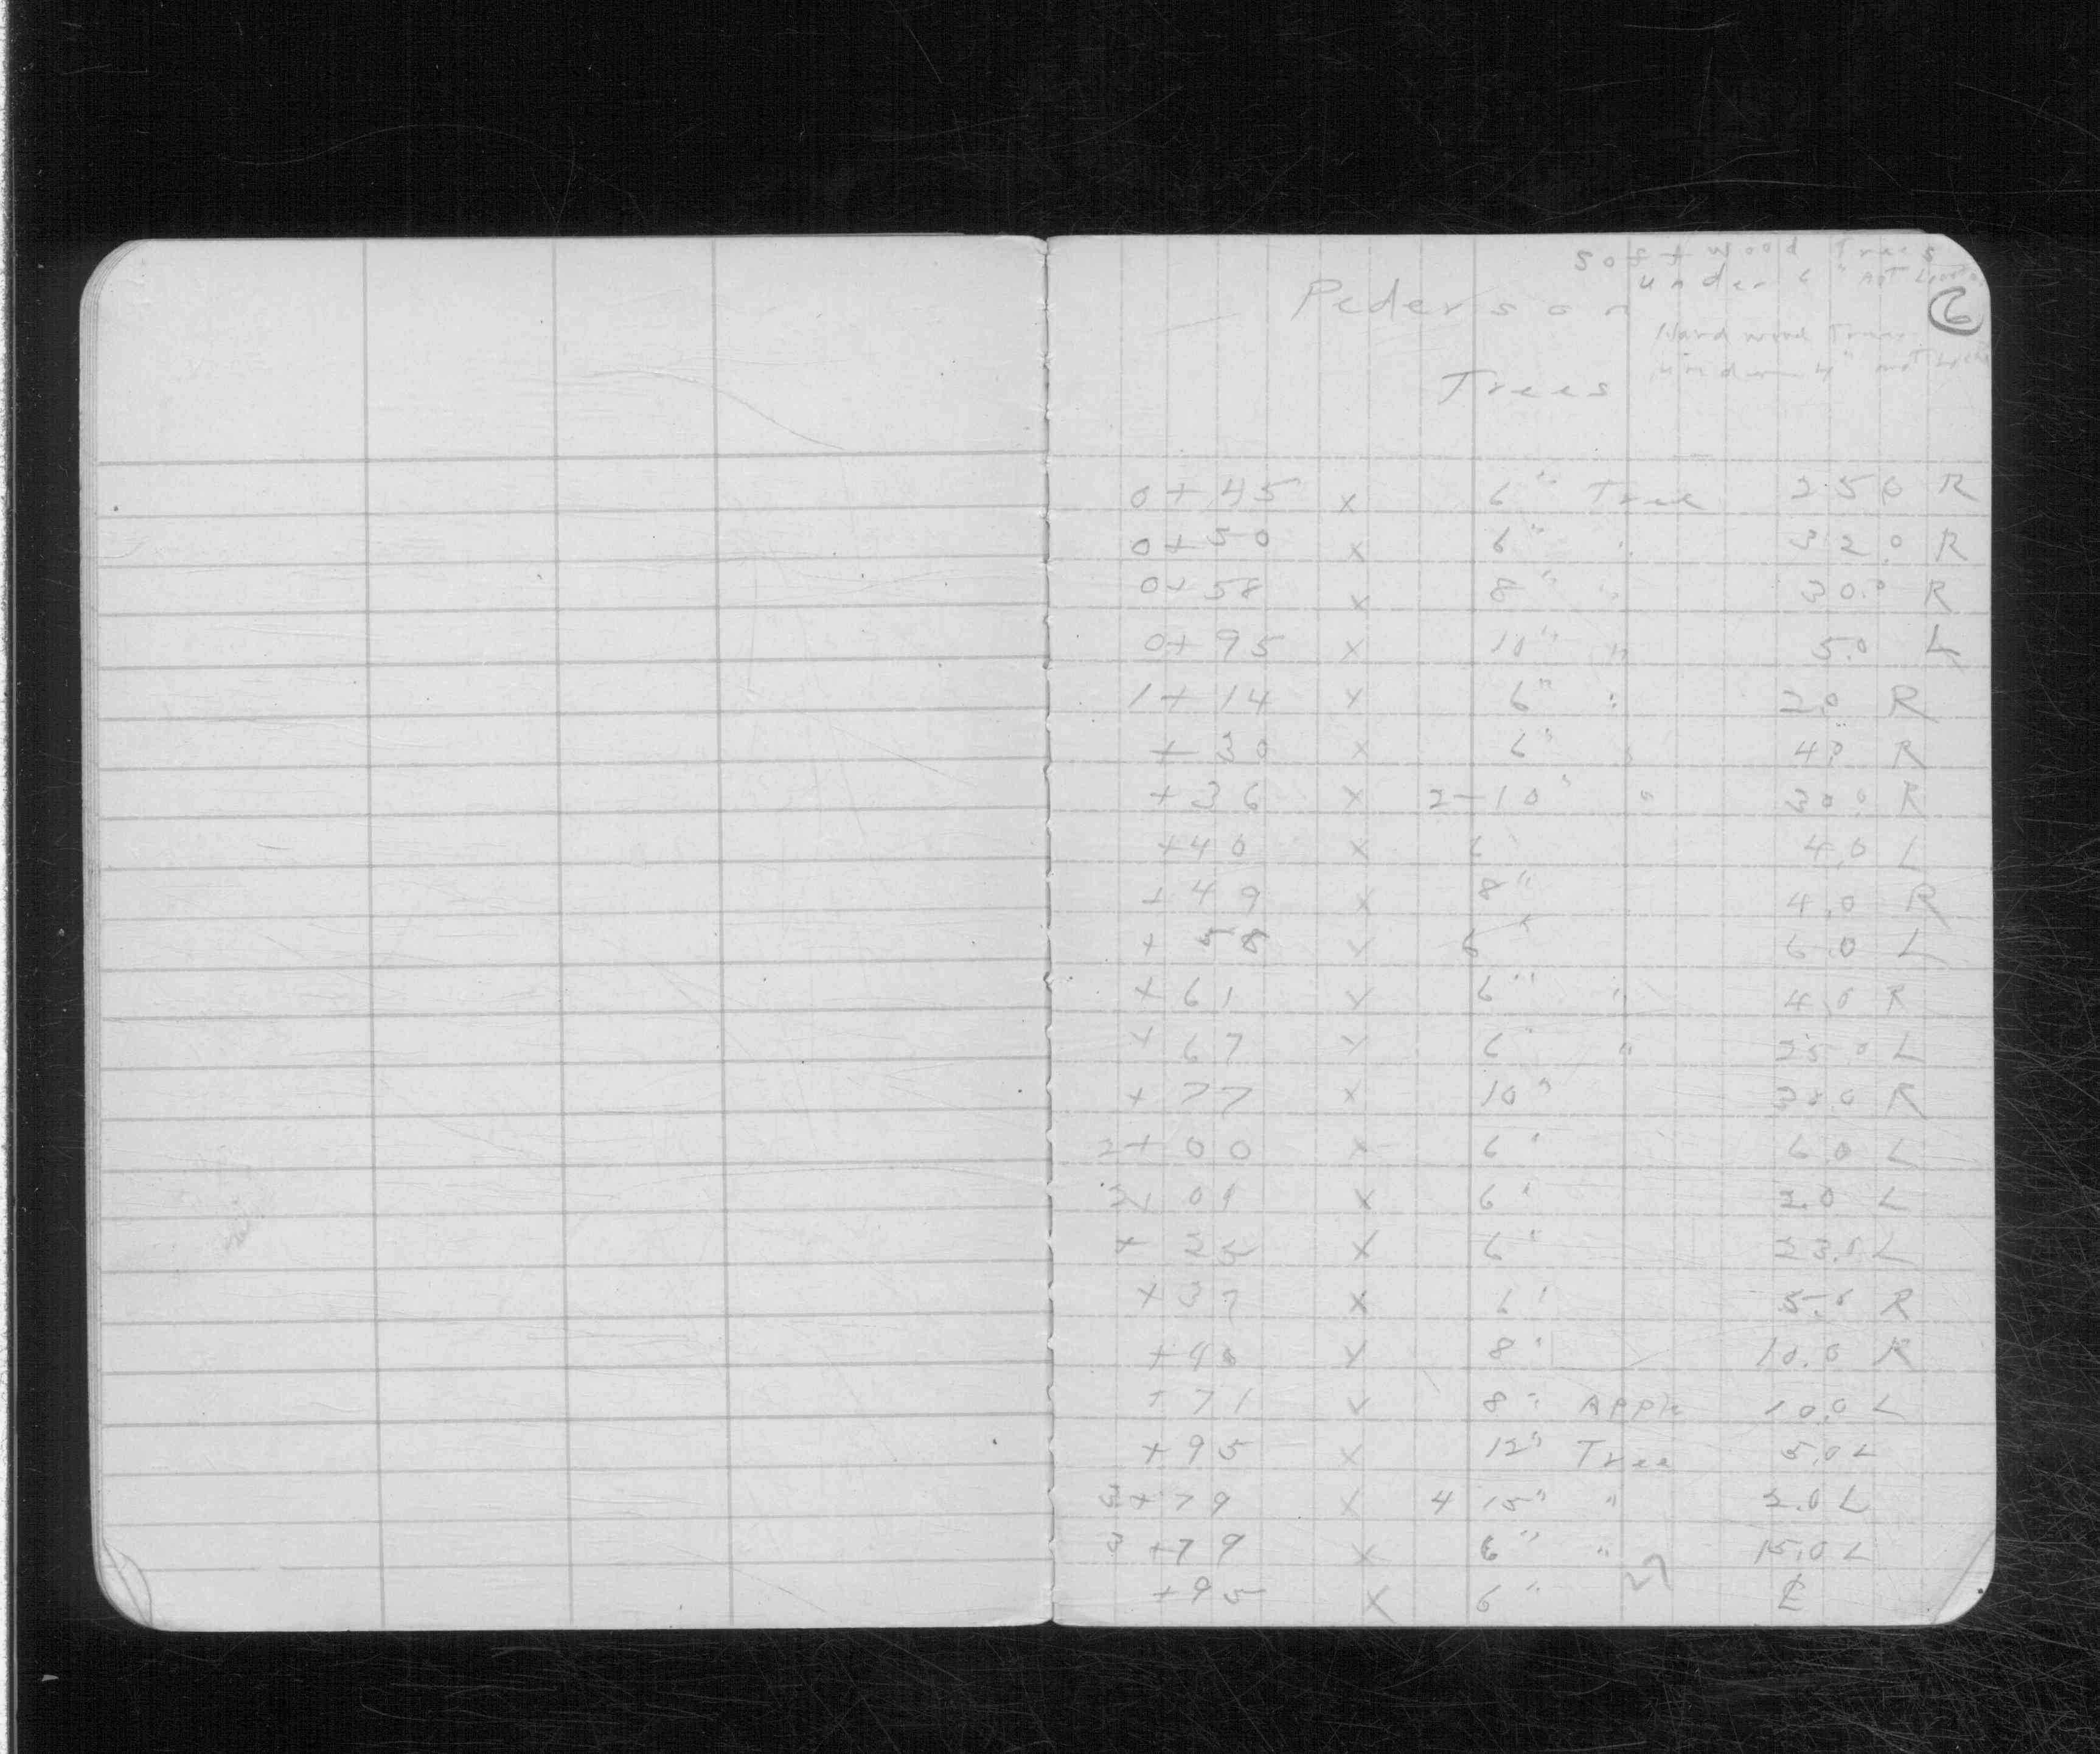 Softwood Trees
under 6" not
Pederson
6
Hardwood Trees
under 4" not
Trees
0+45 x 6" Tree 25.0 R
0+50 x 6" " 32.0 R
0+58 x 8" " 30.0 R
0+95 x 10" " 5.0 L
1+14 x 6" " 2.0 R
+30 x 6" " 4.0 R
+36 x 2-10" " 30.0 R
+40 x 6" 4.0 L
+49 x 8" 4.0 R
+58 x 6" 6.0 L
+61 x 6" " 4.0 R
+67 x 6" " 25.0 L
+77 x 10" R
2+00 x 6" 6.0 L
2+01 x 6" 2.0 L
+25 x 6" L
+37 x 6" 5.0 R
+40 x 8" 10.0 R
+71 x 8" Apple 10.0 L
+95 x 12" Tree 5.0 L
3+79 x 4 15" " 2.0 L
3+79 x 6" " 15.0 L
+95 x 6" ℄